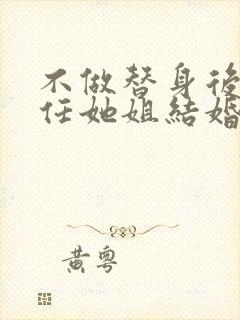 不做替身後
任她姐結婚
黃粵